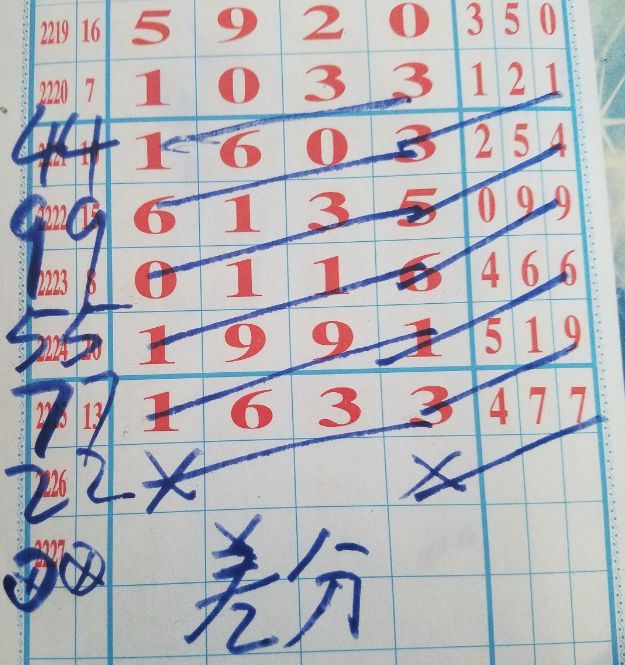 2219 16 5 9 2 0 3 5 0
2220 7 1 0 3 3 1 2 1
44 1 6 0 3 2 5 4
99 2222 15 6 1 3 5 0 9 9
2223 8 0 1 1 6 4 6 6
55 2224 20 1 9 9 1 5 1 9
77 13 1 6 3 3 4 7 7
22 2226 X X
2227
差分